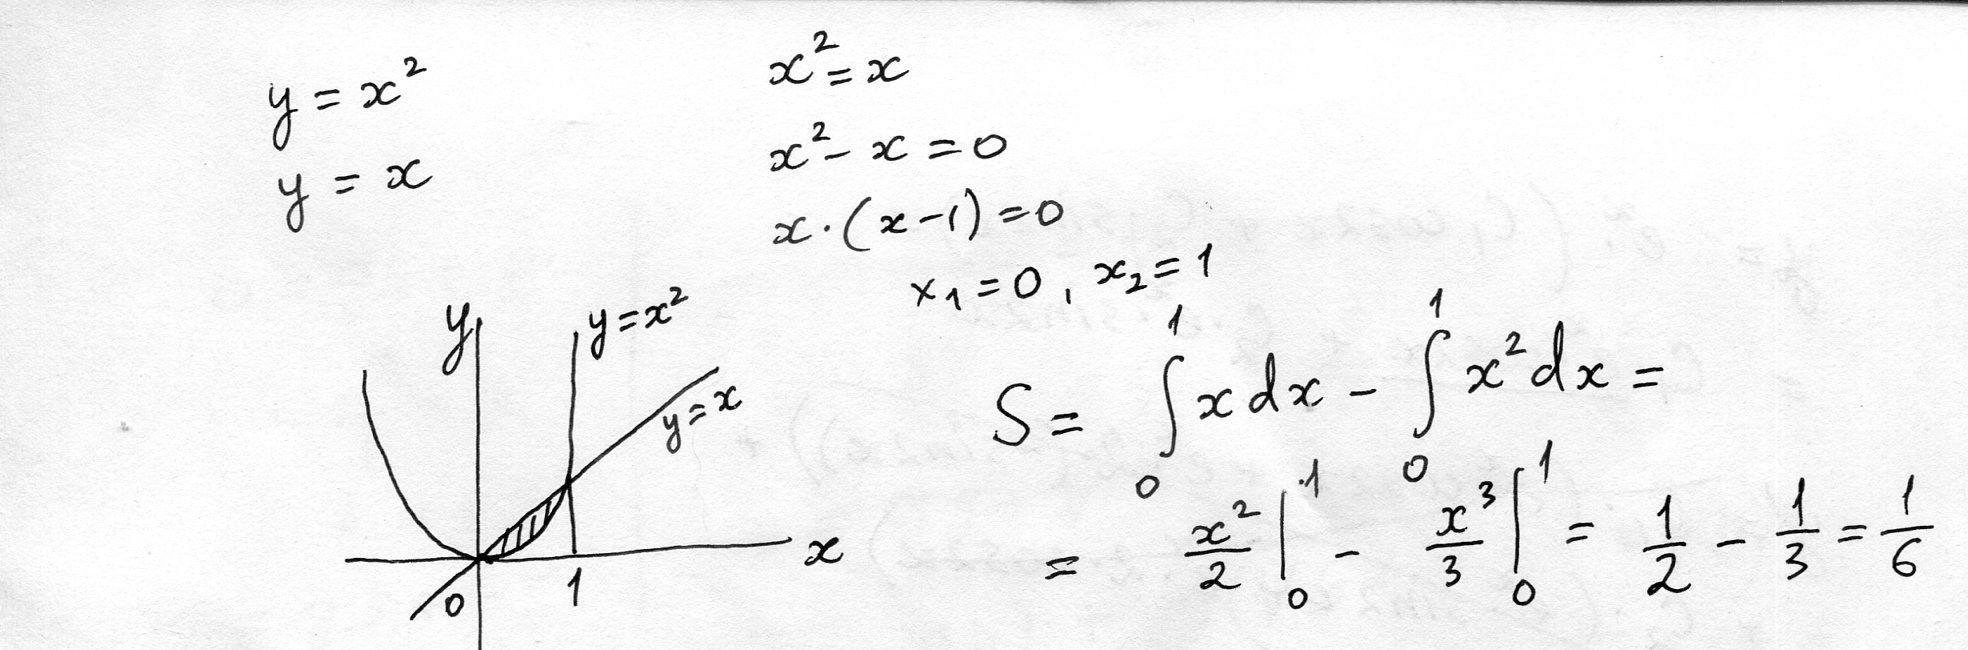 y = x²
y = x
x² = x
x² - x = 0
x · (x - 1) = 0
x₁ = 0, x₂ = 1
y
y = x²
y = x
x
0
1
S = ∫₀¹ x dx - ∫₀¹ x² dx =
= x²/2 |₀¹ - x³/3 |₀¹ = 1/2 - 1/3 = 1/6